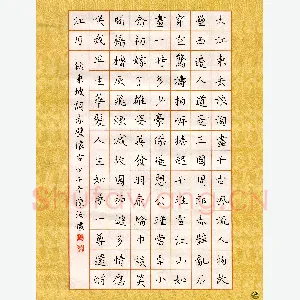 大江東去浪淘盡千古風流人物故
壘西邊人道是三國周郎赤壁亂石
穿空驚濤拍岸捲起千堆雪江山如
畫一時多少豪傑遙想公瑾當年小
喬初嫁了雄姿英發羽扇綸巾談笑
間檣櫓灰飛煙滅故國神遊多情應
笑我早生華髮人生如夢一尊還酹
江月 東坡詞赤壁懷古